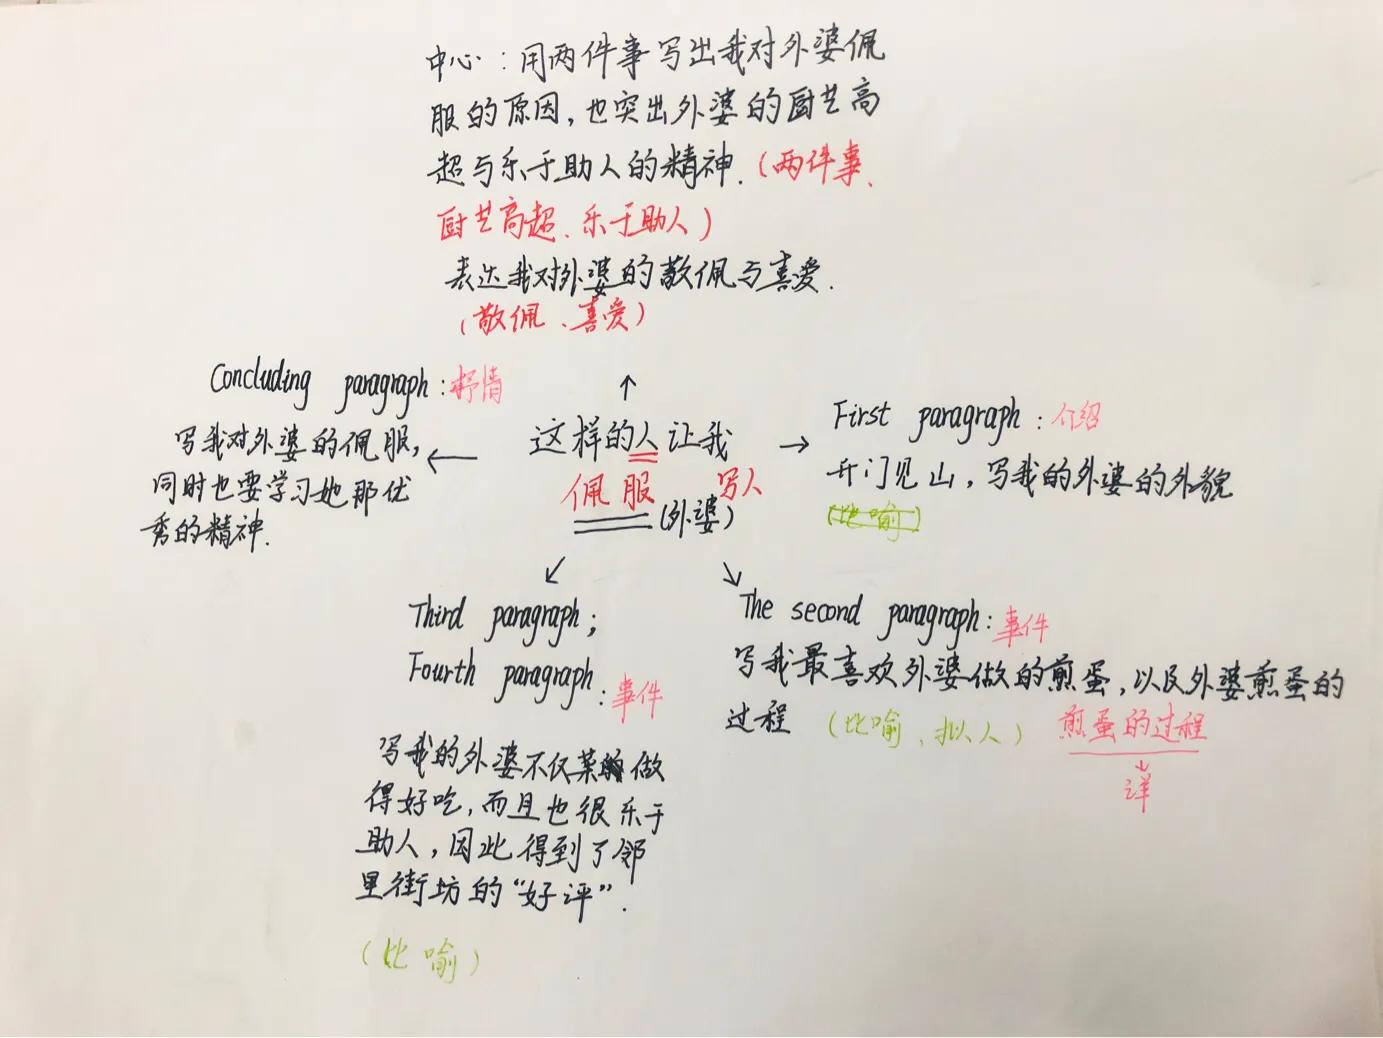 中心：用两件事写出我对外婆佩
服的原因，也突出外婆的厨艺高
超与乐于助人的精神.（两件事、
厨艺高超、乐于助人）
表达我对外婆的敬佩与喜爱.
（敬佩、喜爱）
Concluding paragraph：抒情
写我对外婆的佩服，
同时也要学习她那优
秀的精神.
这样的人让我
佩服 写人
（外婆）
First paragraph：介绍
开门见山，写我的外婆的外貌
（比喻）
Third paragraph；
Fourth paragraph：事件
写我的外婆不仅菜做
得好吃，而且也很乐于
助人，因此得到了邻
里街坊的“好评”.
（比喻）
The second paragraph：事件
写我最喜欢外婆做的煎蛋，以及外婆煎蛋的
过程（比喻、拟人）煎蛋的过程
详